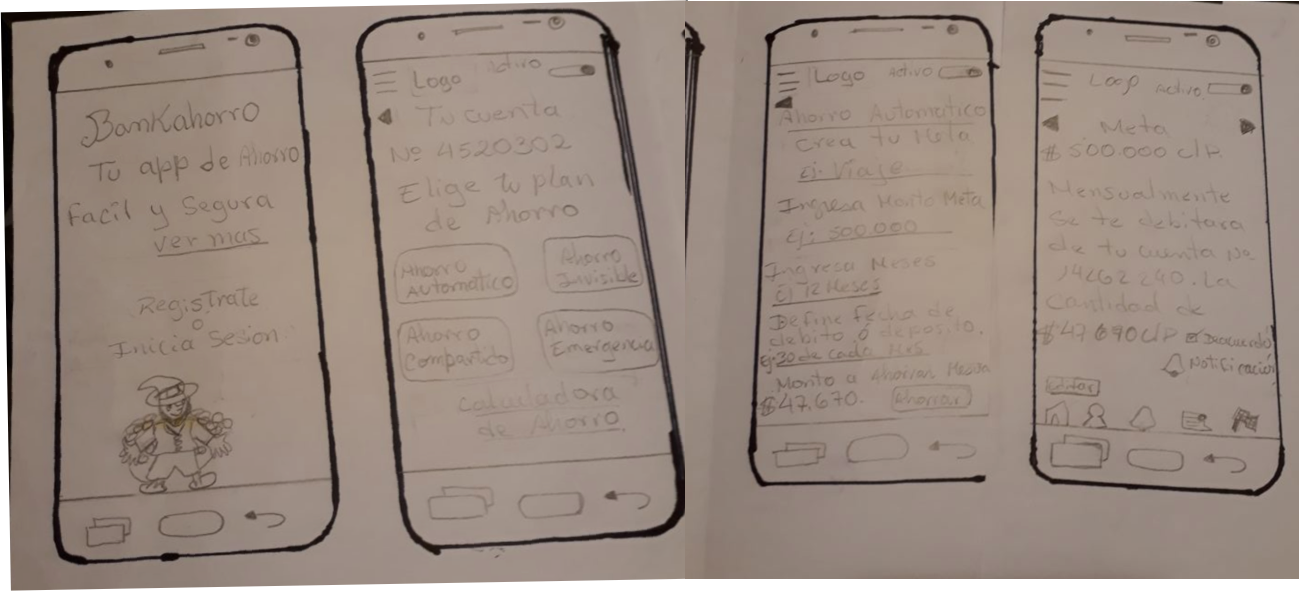 BanKahorro
Tu app de Ahorro
Facil y Segura
ver mas
Registrate
o
Inicia Sesion
Logo
Activo
Tu cuenta
Nº 4520302
Elige tu plan
de Ahorro
Ahorro
Automático
Ahorro
Invisible
Ahorro
Compartido
Ahorro
Emergencia
Calculadora
de Ahorro
Logo
Activo
Ahorro Automatico
Crea tu Meta
Ej: Viaje
Ingresa Monto Meta
Ej: 500.000
Ingresa Meses
12 Meses
Define fecha de
debito ó deposito.
Ej: 30 de cada Mes
Monto a Ahorrar
$47.670.
Ahorrar
Activo
Meta
$ 500.000 c/P.
Mensualmente
Se te debitara
de tu cuenta No
14262240. La
Cantidad de
$47.670 c/P
Notificación
Editar